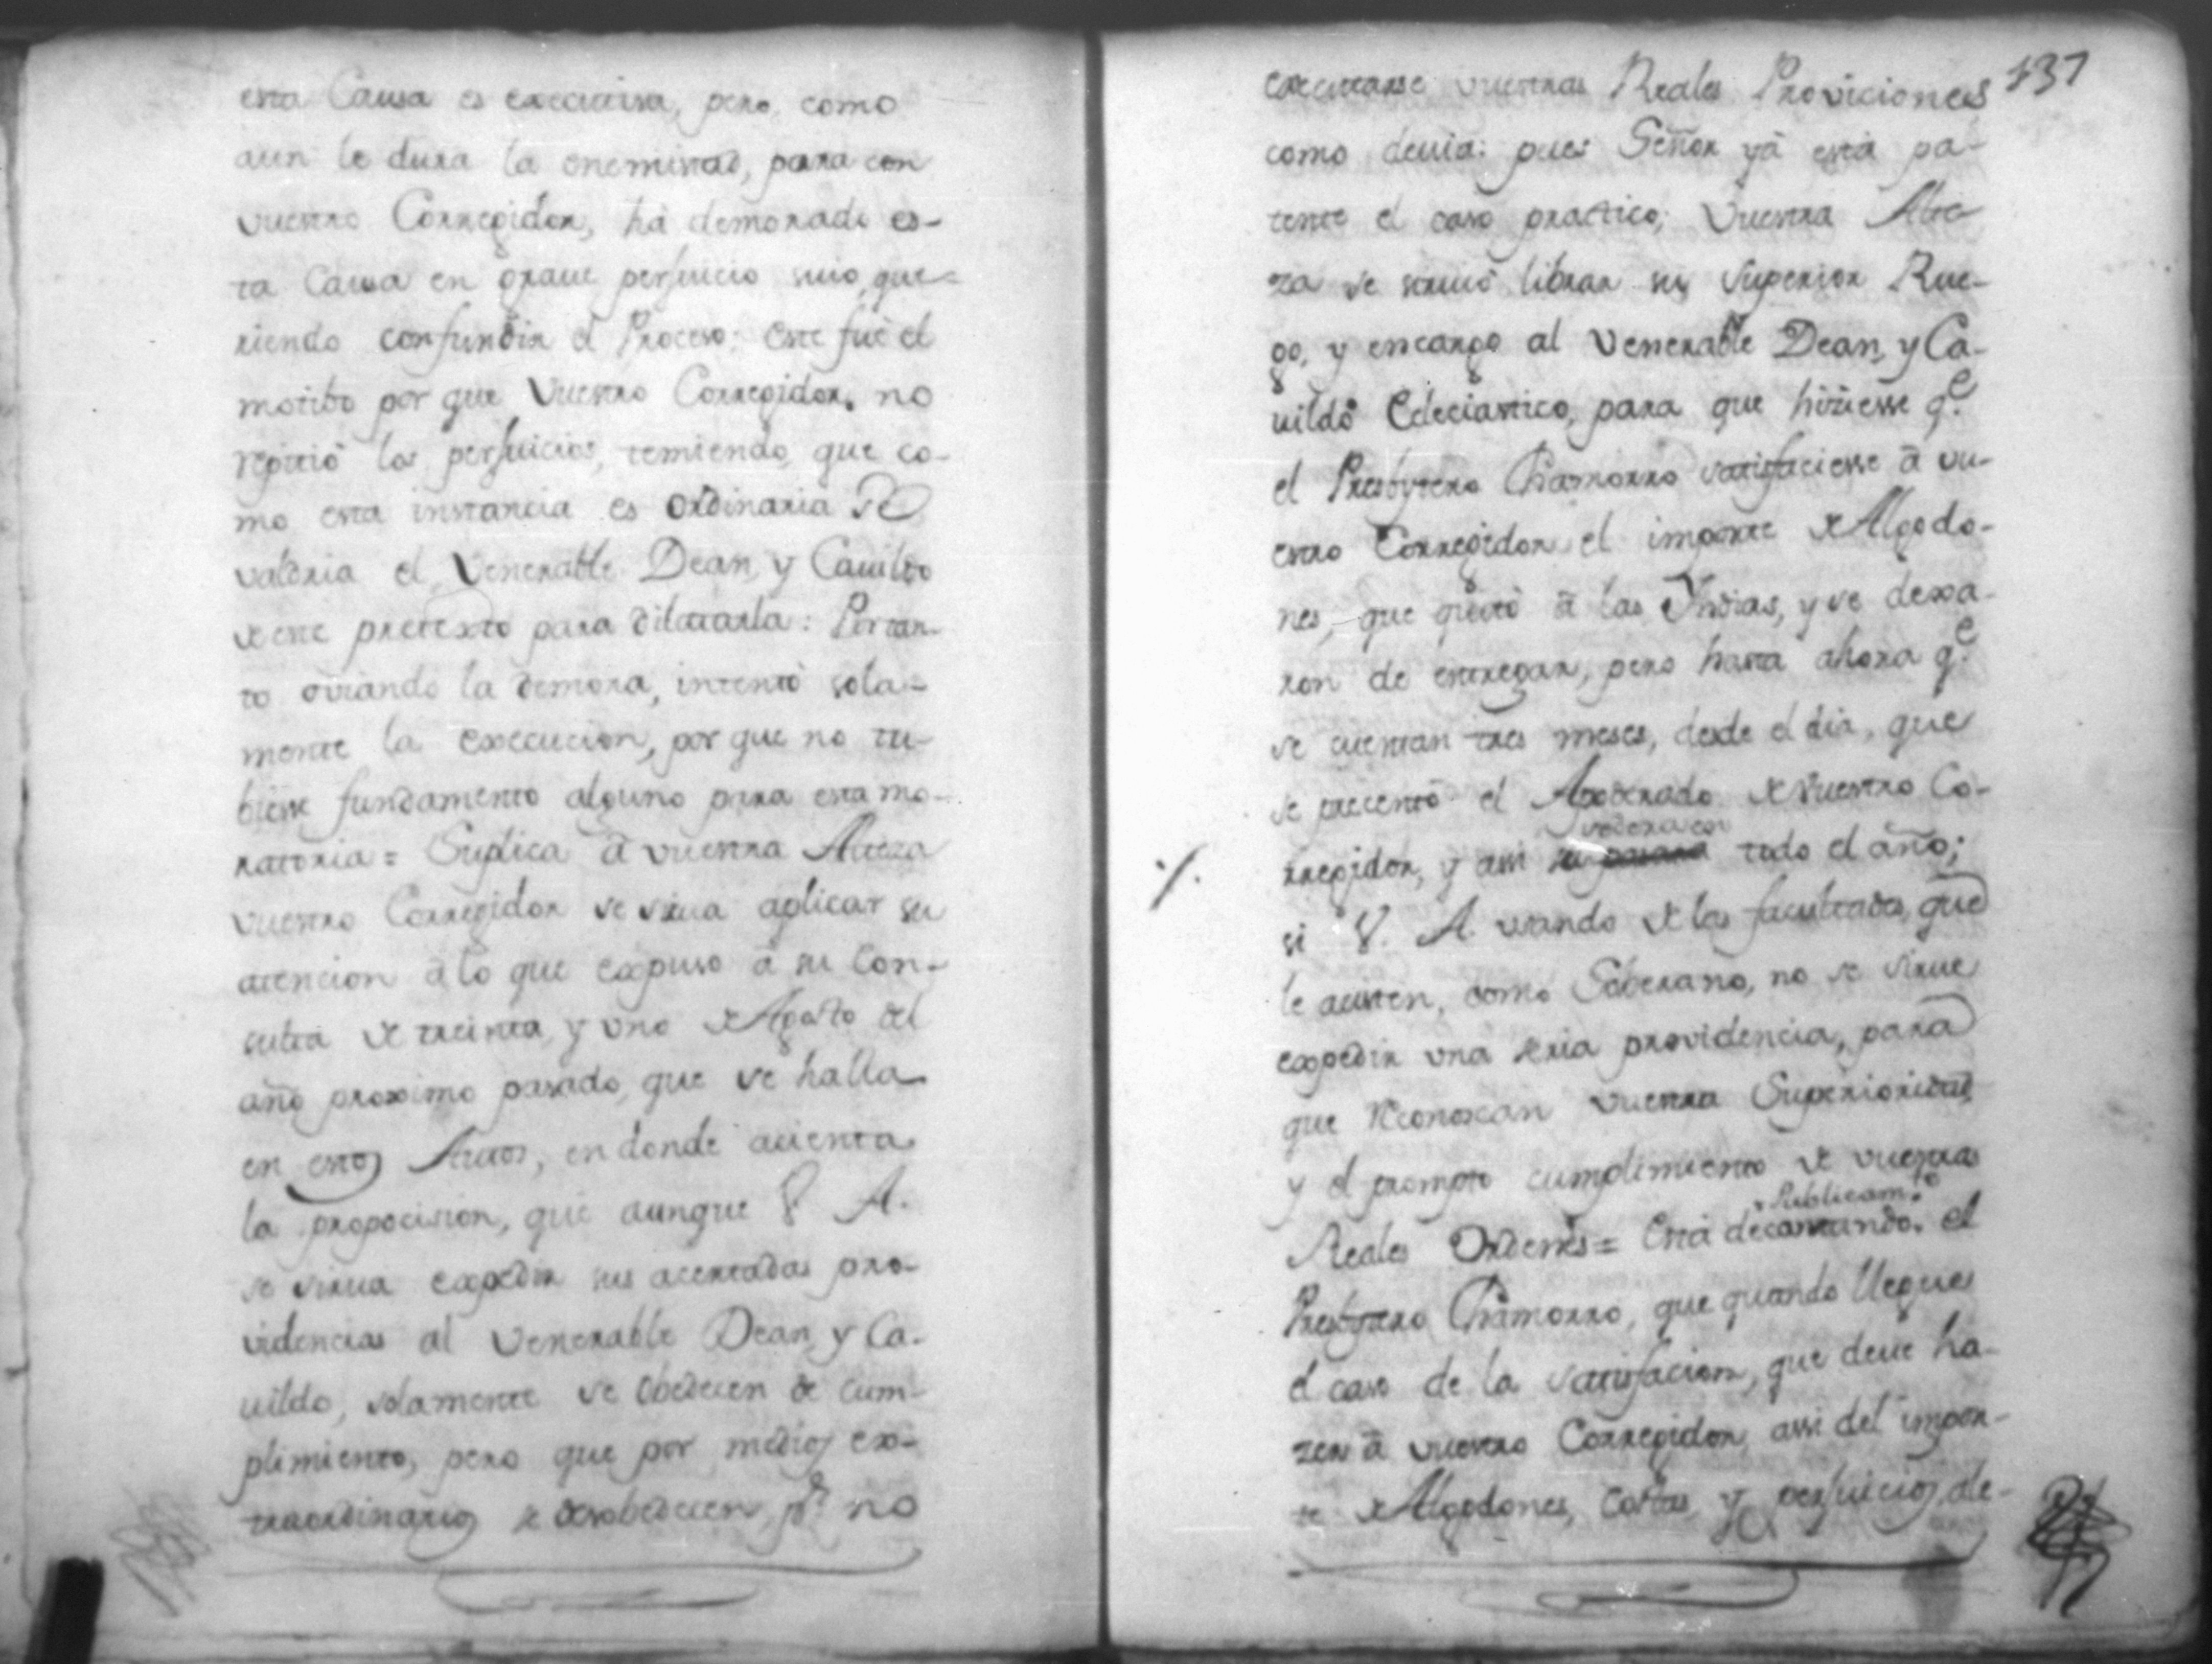 esta Causa es executiva, pero como
aun le dura la enemistad, para con
vuestro Corregidor, há demorado es-
ta Causa en graue perjuicio suio, que-
riendo confundir el Proceso: este fué el
motibo por que Vuestro Corregidor, no
repitió los perjuicios, temiendo, que co-
mo esta instancia es ordinaria se
valdria el Venerable Dean, y Cauildo
de este pretexto para dilatarla: Portan-
to oviando la demora, intentó sola-
mente la execucion, por que no tu-
biesse fundamento alguno para esta mo-
ratoria = Suplica â vuestra Alteza
vuestro Corregidor se sirua aplicar su
atencion â lo que expuso â su Con-
sulta de treinta, y uno de Agosto del
año proximo pasado, que se halla
en estos Autos, en donde acienta
la propocision, que aunque V. A.
se sirua expedir sus acertadas pro-
videncias al Venerable Dean, y Ca-
uildo, solamente se obedecen de cum-
plimiento, pero que por medios ex-
traordinarios se desobedecen, pr. no
137
executarse vuestras Reales Proviciones
como deuia: pues Señor yá está pa-
tente el caso practico; Vuestra Alte-
za se siruió librar su Superior Rue-
go, y encargo al Venerable Dean, y Ca-
uildo Ecleciastico, para que hiziesse q.e
el Presbytero Chamorro satisfaciesse â vu-
estro Corregidor el importe de Algodo-
nes, que quitó â las Yndias, y se dexa-
ron de entregar, pero hasta ahora q.e
se cuentan tres meses, desde el dia, que
se precentó el Apoderado de Vuestro Co-
rregidor, y assi todo el año;
si V. A. usando de las facultades, que
le assisten, como Soberano, no se sirue
expedir una seria providencia, para
que reconoscan vuestra Superioridad,
y el prompto cumplimiento de vuestras
Publicam.te
Reales Ordenes = Está decantando el
Presbytero Chamorro, que quando llegue
el caso de la satisfacion, que deue ha-
zer â vuestro Corregidor, assi del impor-
te de Algodones, costas, y perjuicios, de-